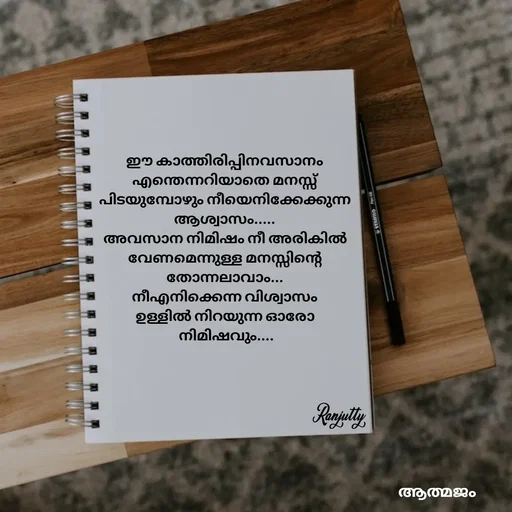 ഈ കാത്തിരിപ്പിനവസാനം
എന്തെന്നറിയാതെ മനസ്സ്
പിടയുമ്പോഴും നീയെനിക്കേക്കുന്ന
ആശ്വാസം.....
അവസാന നിമിഷം നീ അരികിൽ
വേണമെന്നുള്ള മനസ്സിന്റെ
തോന്നലാവാം...
നീഎനിക്കെന്ന വിശ്വാസം
ഉള്ളിൽ നിറയുന്ന ഓരോ
നിമിഷവും....
Ranjutty
ആത്മജം